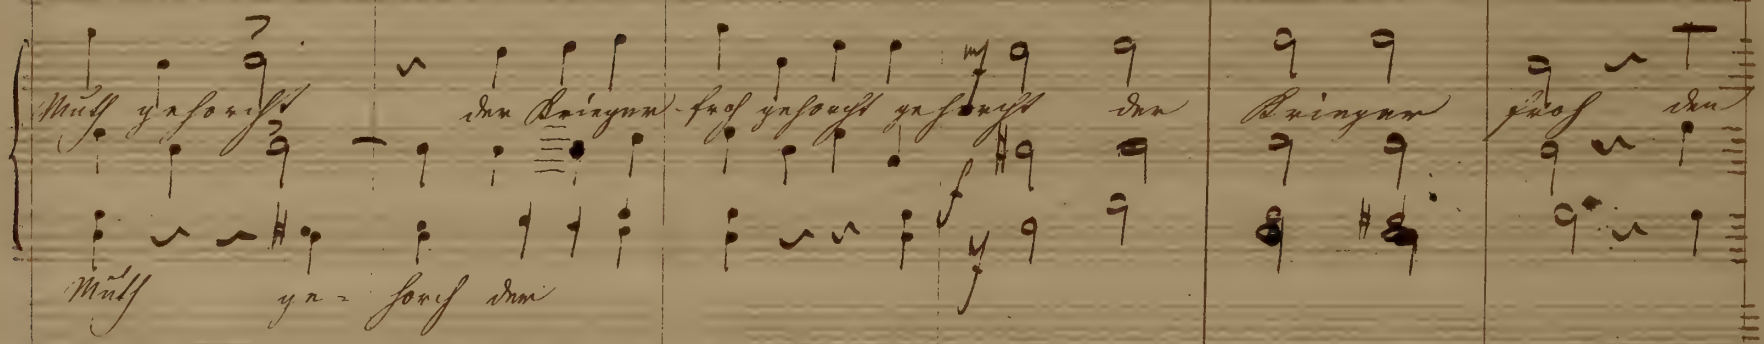 Muth gehorcht der Krieger froh gehorcht gehorcht der Krieger froh den
Muth ge- horch der